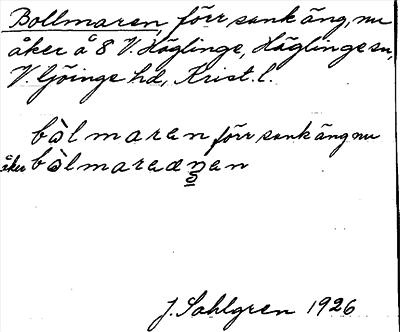 Bollmaren, förr sank äng, nu
åker å 8 V. Häglinge, Häglinge sn,
V. Göinge hd, Krist. l.
bòlmaren förr sank äng nu
åker bòlmaræŋen
J. Sahlgren 1926